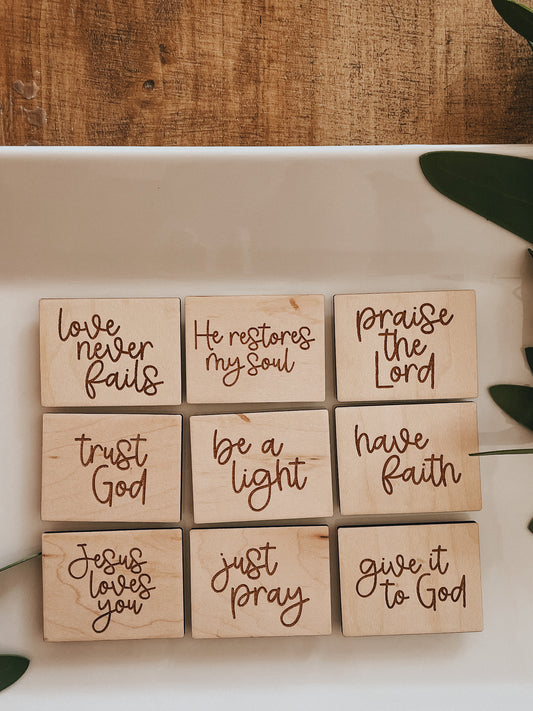 love
never
fails
He restores
my soul
praise
the
Lord
trust
God
be a
light
have
faith
Jesus
loves
you
just
pray
give it
to God